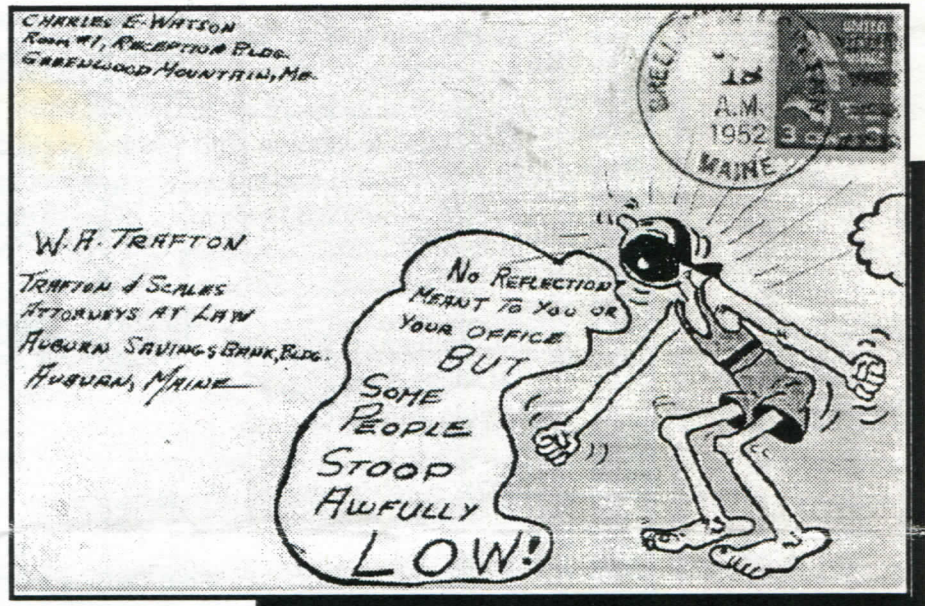 CHARLES E. WATSON
ROOM #1, RECEPTION BLDG.
GREENWOOD MOUNTAIN, ME.
18
A.M.
1952
MAINE
3
W. A. TRAFTON
TRAFTON & SCALES
ATTORNEYS AT LAW
AUBURN SAVINGS BANK, BLDG.
AUBURN, MAINE
NO REFLECTION
MEANT TO YOU OR
YOUR OFFICE
BUT
SOME
PEOPLE
STOOP
AWFULLY
LOW!